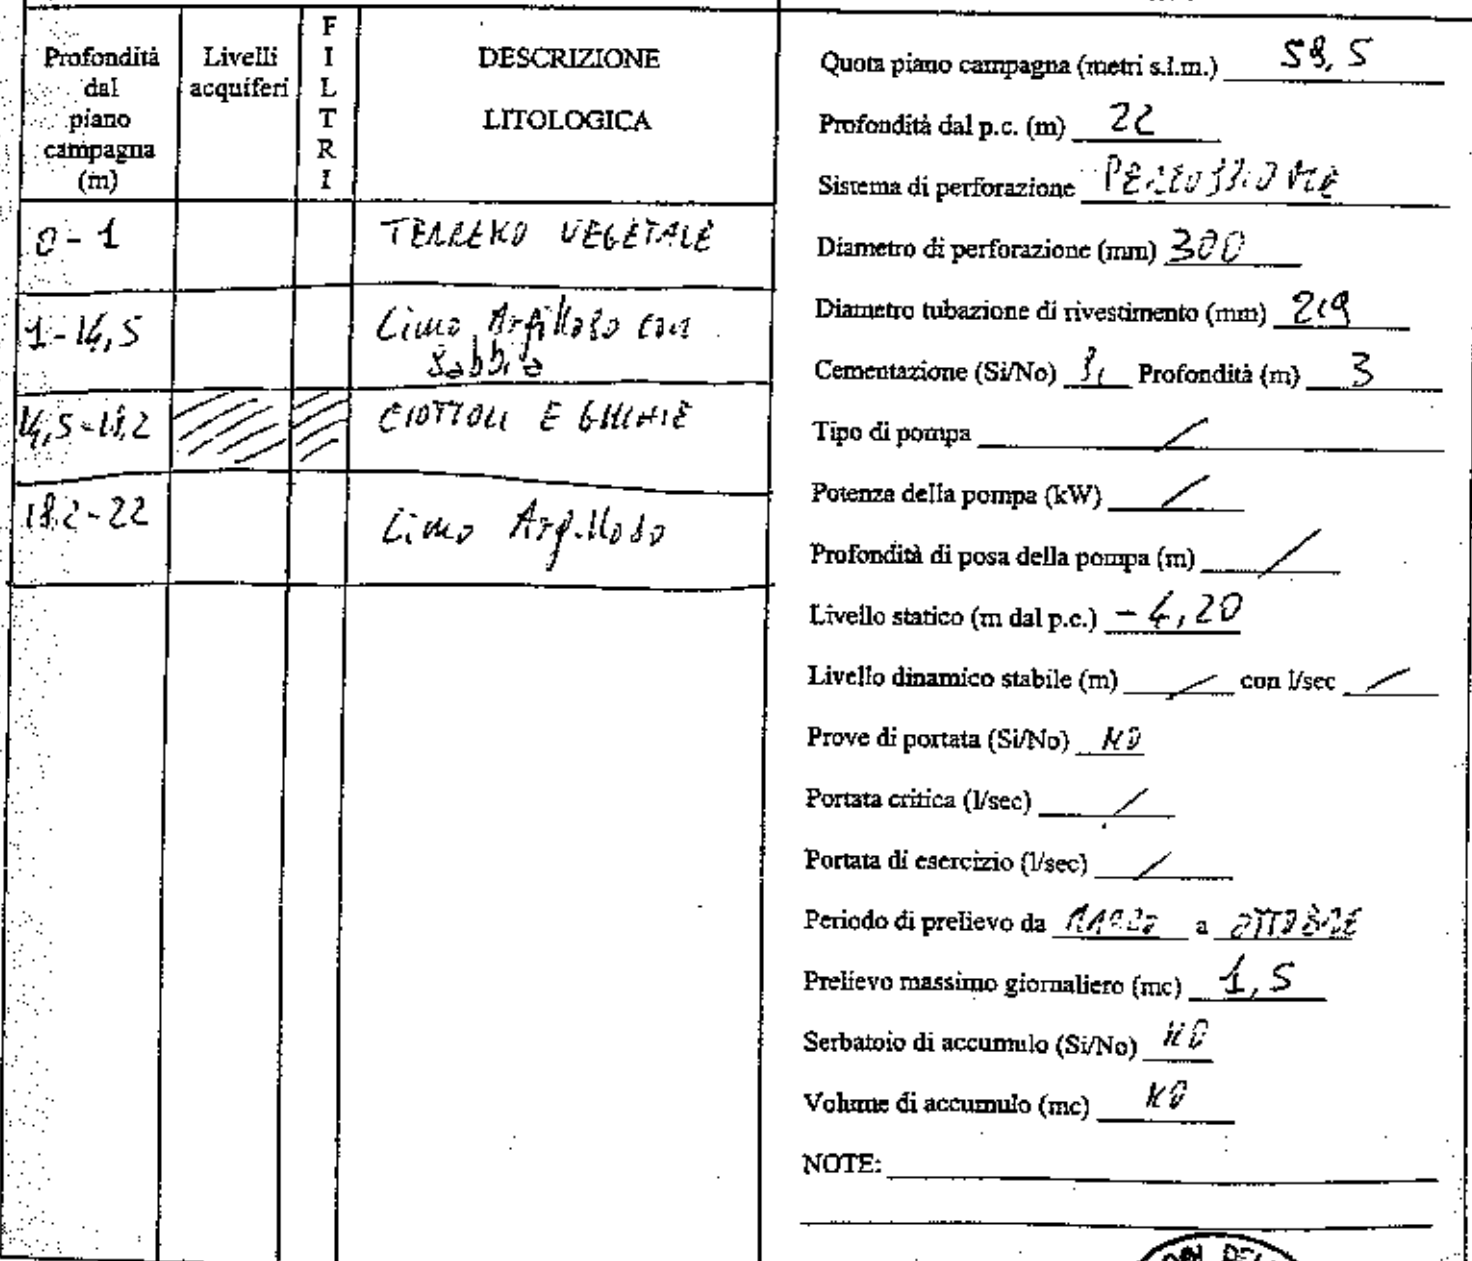 Profondità dal piano campagna (m)
Livelli acquiferi
FILTRI
DESCRIZIONE LITOLOGICA
0 - 1 TERRENO VEGETALE
1 - 14,5 Limo Argilloso con sabbia
14,5 - 18,2 CIOTTOLI E GHIAIE
18.2 - 22 Limo Argilloso
Quota piano campagna (metri s.l.m.) 58, 5
Profondità dal p.c. (m) 22
Sistema di perforazione PERCUSSIONE
Diametro di perforazione (mm) 300
Diametro tubazione di rivestimento (mm) 219
Cementazione (Si/No) Si Profondità (m) 3
Tipo di pompa /
Potenza della pompa (kW) /
Profondità di posa della pompa (m) /
Livello statico (m dal p.c.) - 4, 20
Livello dinamico stabile (m) / con l/sec /
Prove di portata (Si/No) NO
Portata critica (l/sec) /
Portata di esercizio (l/sec) /
Periodo di prelievo da MARZO a OTTOBRE
Prelievo massimo giornaliero (mc) 1, 5
Serbatoio di accumulo (Si/No) NO
Volume di accumulo (mc) NO
NOTE: